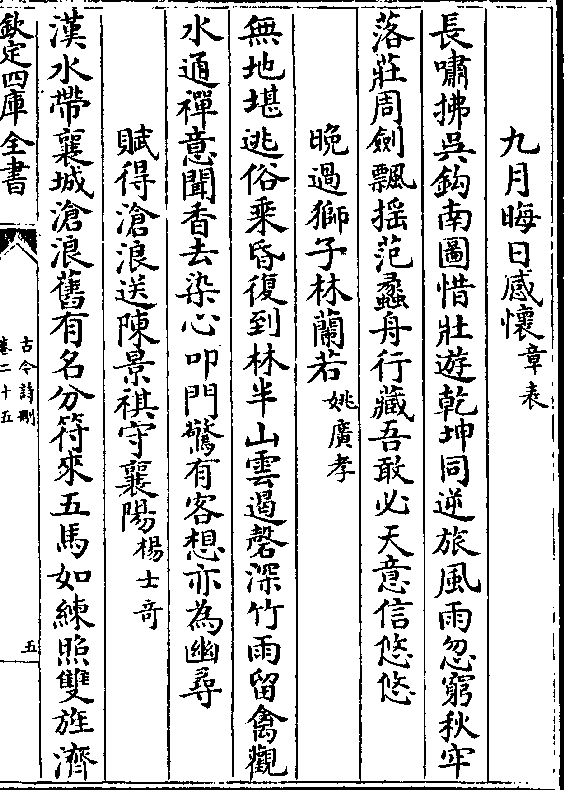 九月晦日感懷章表
長嘯拂吳鈎南圖惜壯遊乾坤同逆旅風雨忽窮秋牢
落莊周劍飄揺范蠡舟行藏吾敢必天意信悠悠
晚過獅子林蘭若姚廣孝
無地堪逃俗乘昏復到林半山雲遏磬深竹雨留禽觀
水通禪意聞香去染心叩門驚有客想亦為幽尋
賦得滄浪送陳景祺守襄陽楊士竒
漢水帶襄城滄浪舊有名分符來五馬如練照雙旌濟
欽定四庫全書
古今詩刪
卷二十五
五